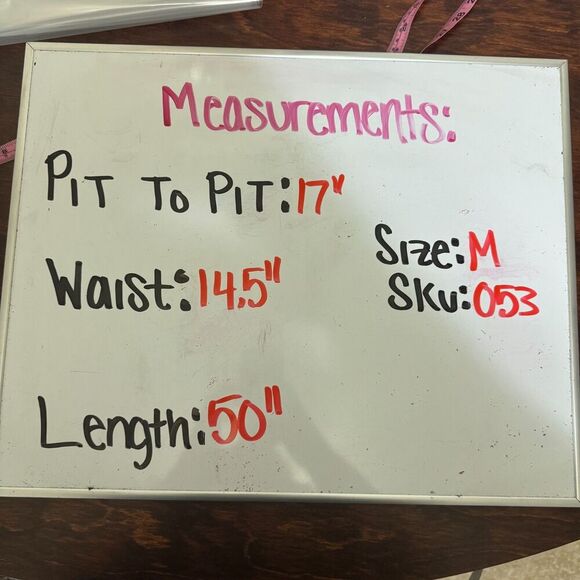 Measurements:
PIT TO PIT: 17"
Waist: 14.5"
Length: 50"
Size: M
SKU: 053